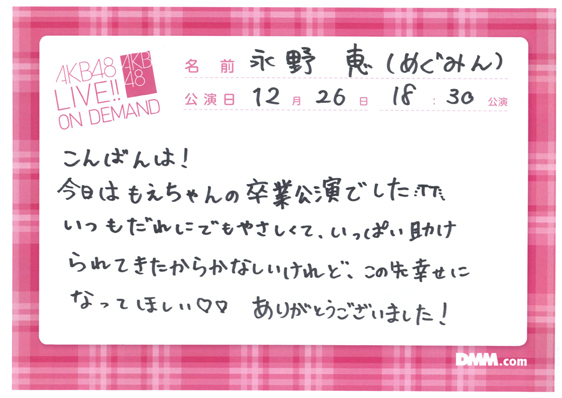 AKB48
LIVE!!
ON DEMAND
AKB
48
名前 永野 恵 (めぐみん)
公演日 12月26日 18:30公演
こんばんは!
今日はもえちゃんの卒業公演でした
いつもだれにでもやさしくて、いっぱい助け
られてきたからかなしいけれど、この先幸せに
なってほしい♡♡ ありがとうございました!
DMM.com